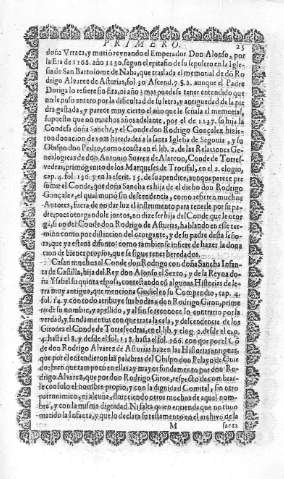 PRIMERO. 25
doña Vrraca, y murió reynando el Emperador Don Alonso, por
la Era de 1168. año 1130. segun el epitafio de su sepulcro en la Igle
sia de San Bartolome de Naba, que traslada el memorial de dõ
Rodrigo Alvarez de Asturias, fol. 30. Ascend. 7. §. 2. aunque el Padre
la Era, ni año; mas puedese tener entendido que
no le puso entero por la dificultad de su letra, y antiguedad de la pie
dra gastada, y parece murio el año que le señala el memorial,
supuesto que ao muchos años adelante, por el de 1127. su hija la
Condesa doña Sancha, y el Conde don Rodrigo Gonçalez, hizie
ron donacion de vna heredad a la santa Iglesia de Segouia, y su
Obispo don Pedro, como consta en el lib. 2. de las Relaciones Ge
nealogicas de don Antonio Suarez de Alarcon, Conde de Torres
vedras, primogenito de los Marqueses de Trocifal, en el 2. elogio,
cap. 4. fol. 156. y en la escrit. 15. de la apendice, aunque parece pre
sume el Conde, que doña Sancha es hija de el dicho don Rodrigo
Gonçalez, el qual murió sin descendencia, como refieren muchos
Autores, fuera de no dar luz el instrumento para tenerle por su pa
dre, pues otorgandole juntos, no dize ser hija del Conde que le otor
ga, sino del Conde don Rodrigo de Asturias, hablando en este ter
mino como por distincion del otorgante, y de su padre desta seño
ra, que ya estaua difunto: como tambien se infiere de hazer la dona
cion de bienes propios, que la sigue tener heredados.
Casan treuchas al Conde don Rodrigo con doña Sancha Infan
ta de Castilla, hija del Rey don Alonso el Sexto, y de la Reyna do
ña Ysabel su quinta esposa, contextado có algunas Historias de le
tra muy antigua, que menciona Gudiel en su Compendio, cap. 4.
fol. 14. y con todo atribuye sus bodas a don Rodrigo Giron, prime
ro de su nombre, y apellido, y al fin se reconoce lo contrario por la
verdad, y fundamentos con que trata la casa, y descendencia de los
Girones el Conde de Torresvedras, en el lib. y elog. 2. desde el cap.
4. hasta el 8. y desde el fol. 153. hasta el 266. con que por el Cõ
de don Rodrigo Alvarez de Asturias hazen las Historias antiguas,
que por el se entiendan las palabras del Obispo don Pelayo de Ouie
do; bien que tampoco ella es muy mayor fundamento por don Ro
drigo Alvarez, que por don Rodrigo Giron, respecto de nombrar
se con solo el nombre propio, y con la dignidad Comital, sin otro
patronimico, ni alcuña, floreciendo otros muchos de aquel nom
bre, y con la misma dignidad. Ni falta quien entienda que no tuuo
marido la Infanta, y que lo declara su testamento en el archivo de la
M santa